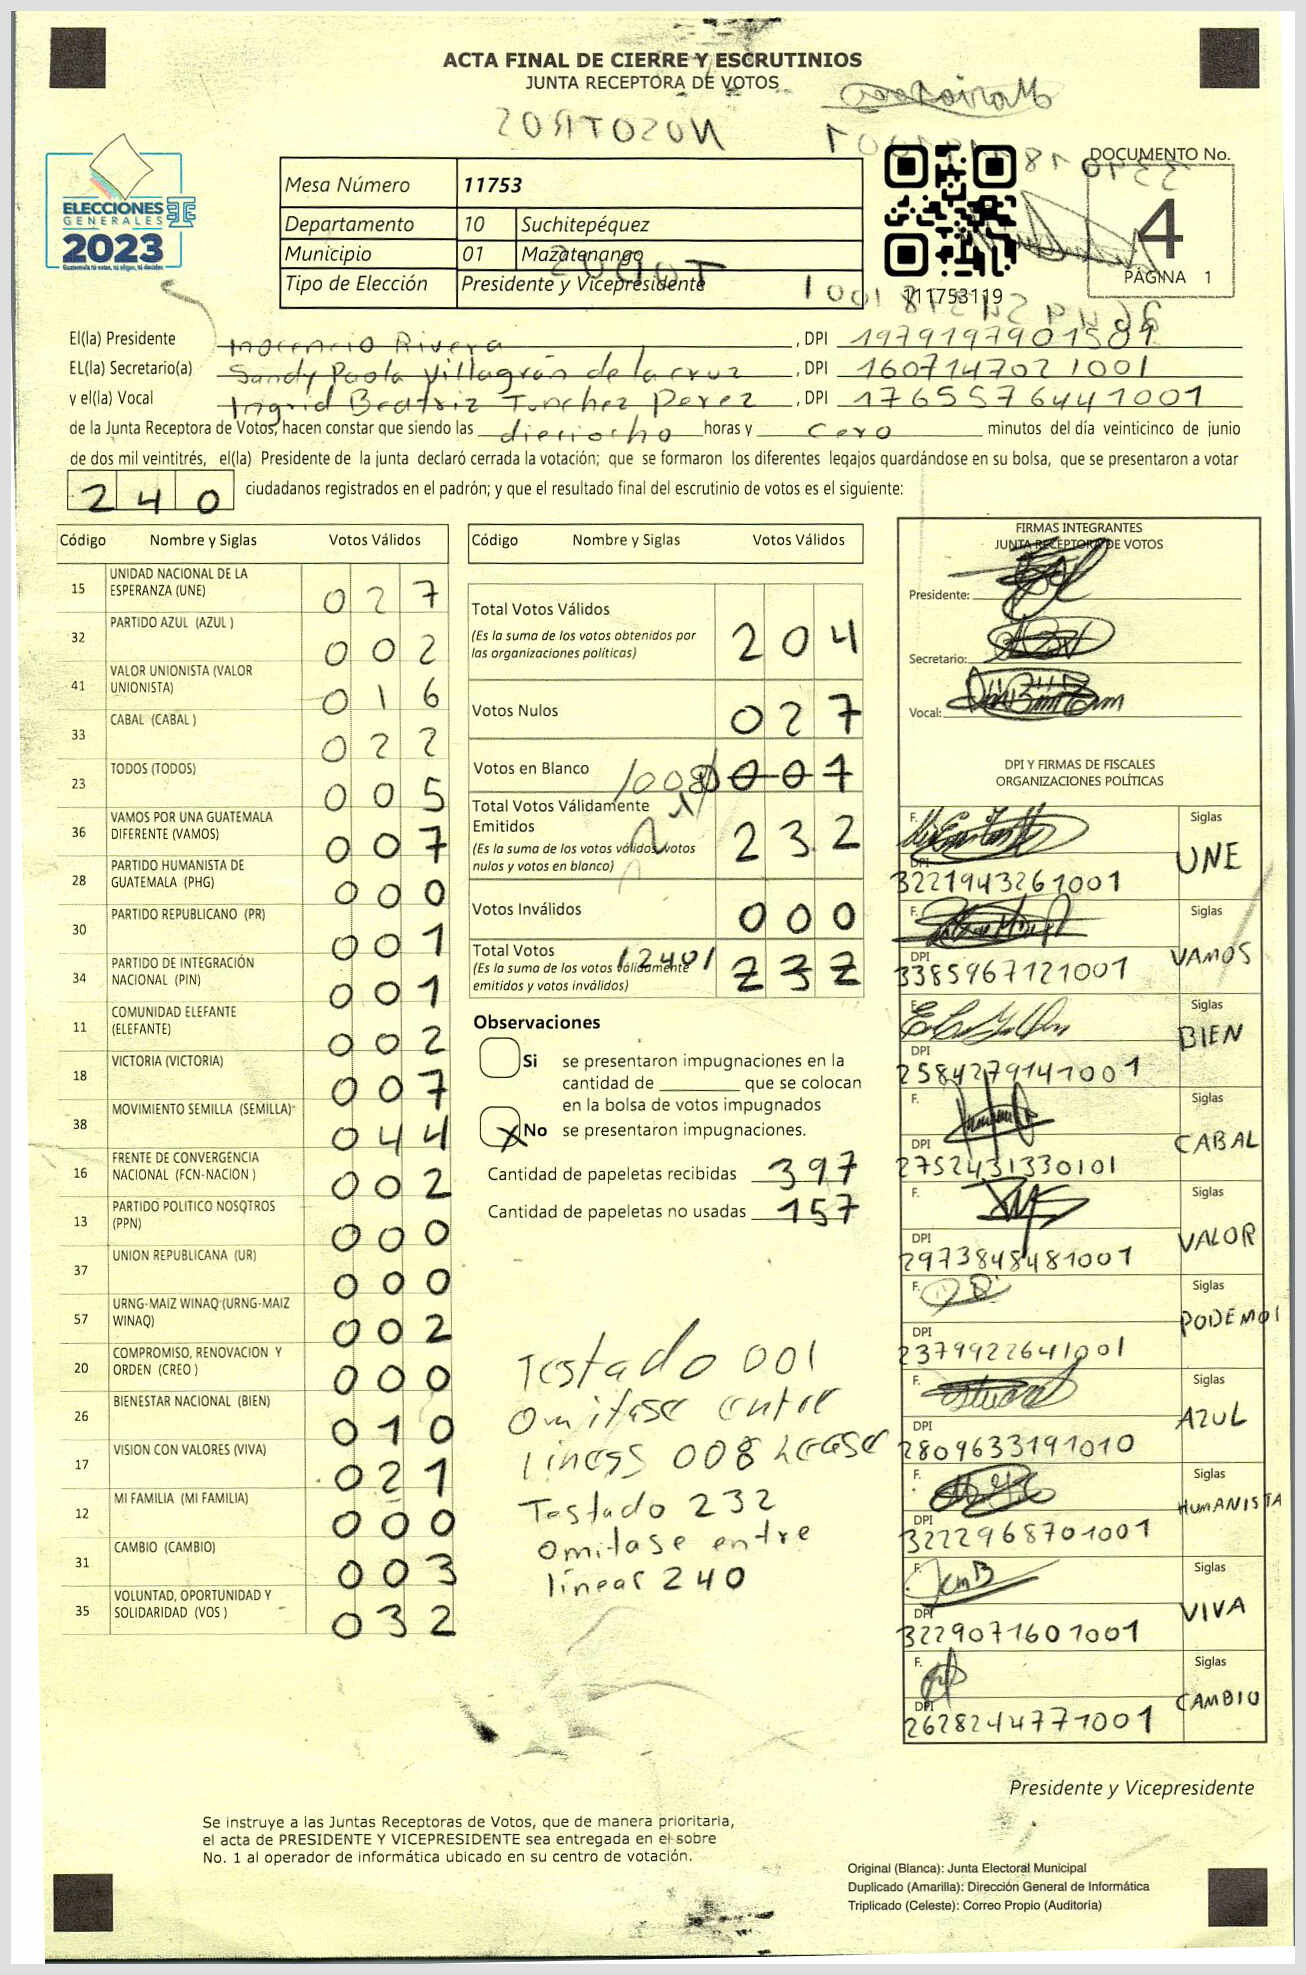 ACTA FINAL DE CIERRE Y ESCRUTINIOS
JUNTA RECEPTORA DE VOTOS
NOSOTROS
ELECCIONES
GENERALES
2023
Guatemala tú votas, tú eliges, tú decides
Mesa Número 11753
Departamento 10 Suchitepéquez
Municipio 01 Mazatenango
Tipo de Elección Presidente y Vicepresidente
TODOS
111753119
DOCUMENTO No.
4
PÁGINA 1
El(la) Presidente Inocencio Rivera, DPI 1979197901501
EL(la) Secretario(a) Sandy Paola Villagrán de la cruz, DPI 1607147021001
y el(la) Vocal Ingrid Beatriz Tunchez Perez, DPI 1765576441001
de la Junta Receptora de Votos, hacen constar que siendo las dieciocho horas y cero minutos del día veinticinco de junio
de dos mil veintitrés, el(la) Presidente de la junta declaró cerrada la votación; que se formaron los diferentes legajos guardándose en su bolsa, que se presentaron a votar
240 ciudadanos registrados en el padrón; y que el resultado final del escrutinio de votos es el siguiente:
Código Nombre y Siglas Votos Válidos
15 UNIDAD NACIONAL DE LA ESPERANZA (UNE) 027
32 PARTIDO AZUL (AZUL ) 002
41 VALOR UNIONISTA (VALOR UNIONISTA) 016
33 CABAL (CABAL ) 022
23 TODOS (TODOS) 005
36 VAMOS POR UNA GUATEMALA DIFERENTE (VAMOS) 007
28 PARTIDO HUMANISTA DE GUATEMALA (PHG) 000
30 PARTIDO REPUBLICANO (PR) 001
34 PARTIDO DE INTEGRACIÓN NACIONAL (PIN) 001
11 COMUNIDAD ELEFANTE (ELEFANTE) 002
18 VICTORIA (VICTORIA) 007
38 MOVIMIENTO SEMILLA (SEMILLA) 044
16 FRENTE DE CONVERGENCIA NACIONAL (FCN-NACION ) 002
13 PARTIDO POLITICO NOSOTROS (PPN) 000
37 UNION REPUBLICANA (UR) 000
57 URNG-MAIZ WINAQ (URNG-MAIZ WINAQ) 002
20 COMPROMISO, RENOVACION Y ORDEN (CREO ) 000
26 BIENESTAR NACIONAL (BIEN) 010
17 VISION CON VALORES (VIVA) 021
12 MI FAMILIA (MI FAMILIA) 000
31 CAMBIO (CAMBIO) 003
35 VOLUNTAD, OPORTUNIDAD Y SOLIDARIDAD (VOS ) 032
Código Nombre y Siglas Votos Válidos
Total Votos Válidos 204
(Es la suma de los votos obtenidos por
las organizaciones políticas)
Votos Nulos 027
Votos en Blanco /008/ 007
Total Votos Válidamente
Emitidos 232
(Es la suma de los votos válidos, votos
nulos y votos en blanco)
Votos Inválidos 000
Total Votos /240/ 232
(Es la suma de los votos válidamente
emitidos y votos inválidos)
Observaciones
Si se presentaron impugnaciones en la
cantidad de ________ que se colocan
en la bolsa de votos impugnados
X No se presentaron impugnaciones.
Cantidad de papeletas recibidas 397
Cantidad de papeletas no usadas 157
Testado 001
omitase entre
lineas 008 Lease
Testado 232
omitase entre
linear 240
FIRMAS INTEGRANTES
JUNTA RECEPTORA DE VOTOS
Presidente:
Secretario:
Vocal:
DPI Y FIRMAS DE FISCALES
ORGANIZACIONES POLÍTICAS
F. Siglas UNE
DPI 3221943261001
F. Siglas VAMOS
DPI 3385967121001
F. Siglas BIEN
DPI 2584279141001
F. Siglas CABAL
DPI 2752431330101
F. Siglas VALOR
DPI 2973848481001
F. Siglas PODEMOS
DPI 2379922641001
F. Siglas AZUL
DPI 2809633191010
F. Siglas HUMANISTA
DPI 3222968701001
F. Siglas VIVA
DPI 3229071601001
F. Siglas CAMBIO
DPI 2628244771001
Presidente y Vicepresidente
Se instruye a las Juntas Receptoras de Votos, que de manera prioritaria,
el acta de PRESIDENTE Y VICEPRESIDENTE sea entregada en el sobre
No. 1 al operador de informática ubicado en su centro de votación.
Original (Blanca): Junta Electoral Municipal
Duplicado (Amarilla): Dirección General de Informática
Triplicado (Celeste): Correo Propio (Auditoría)